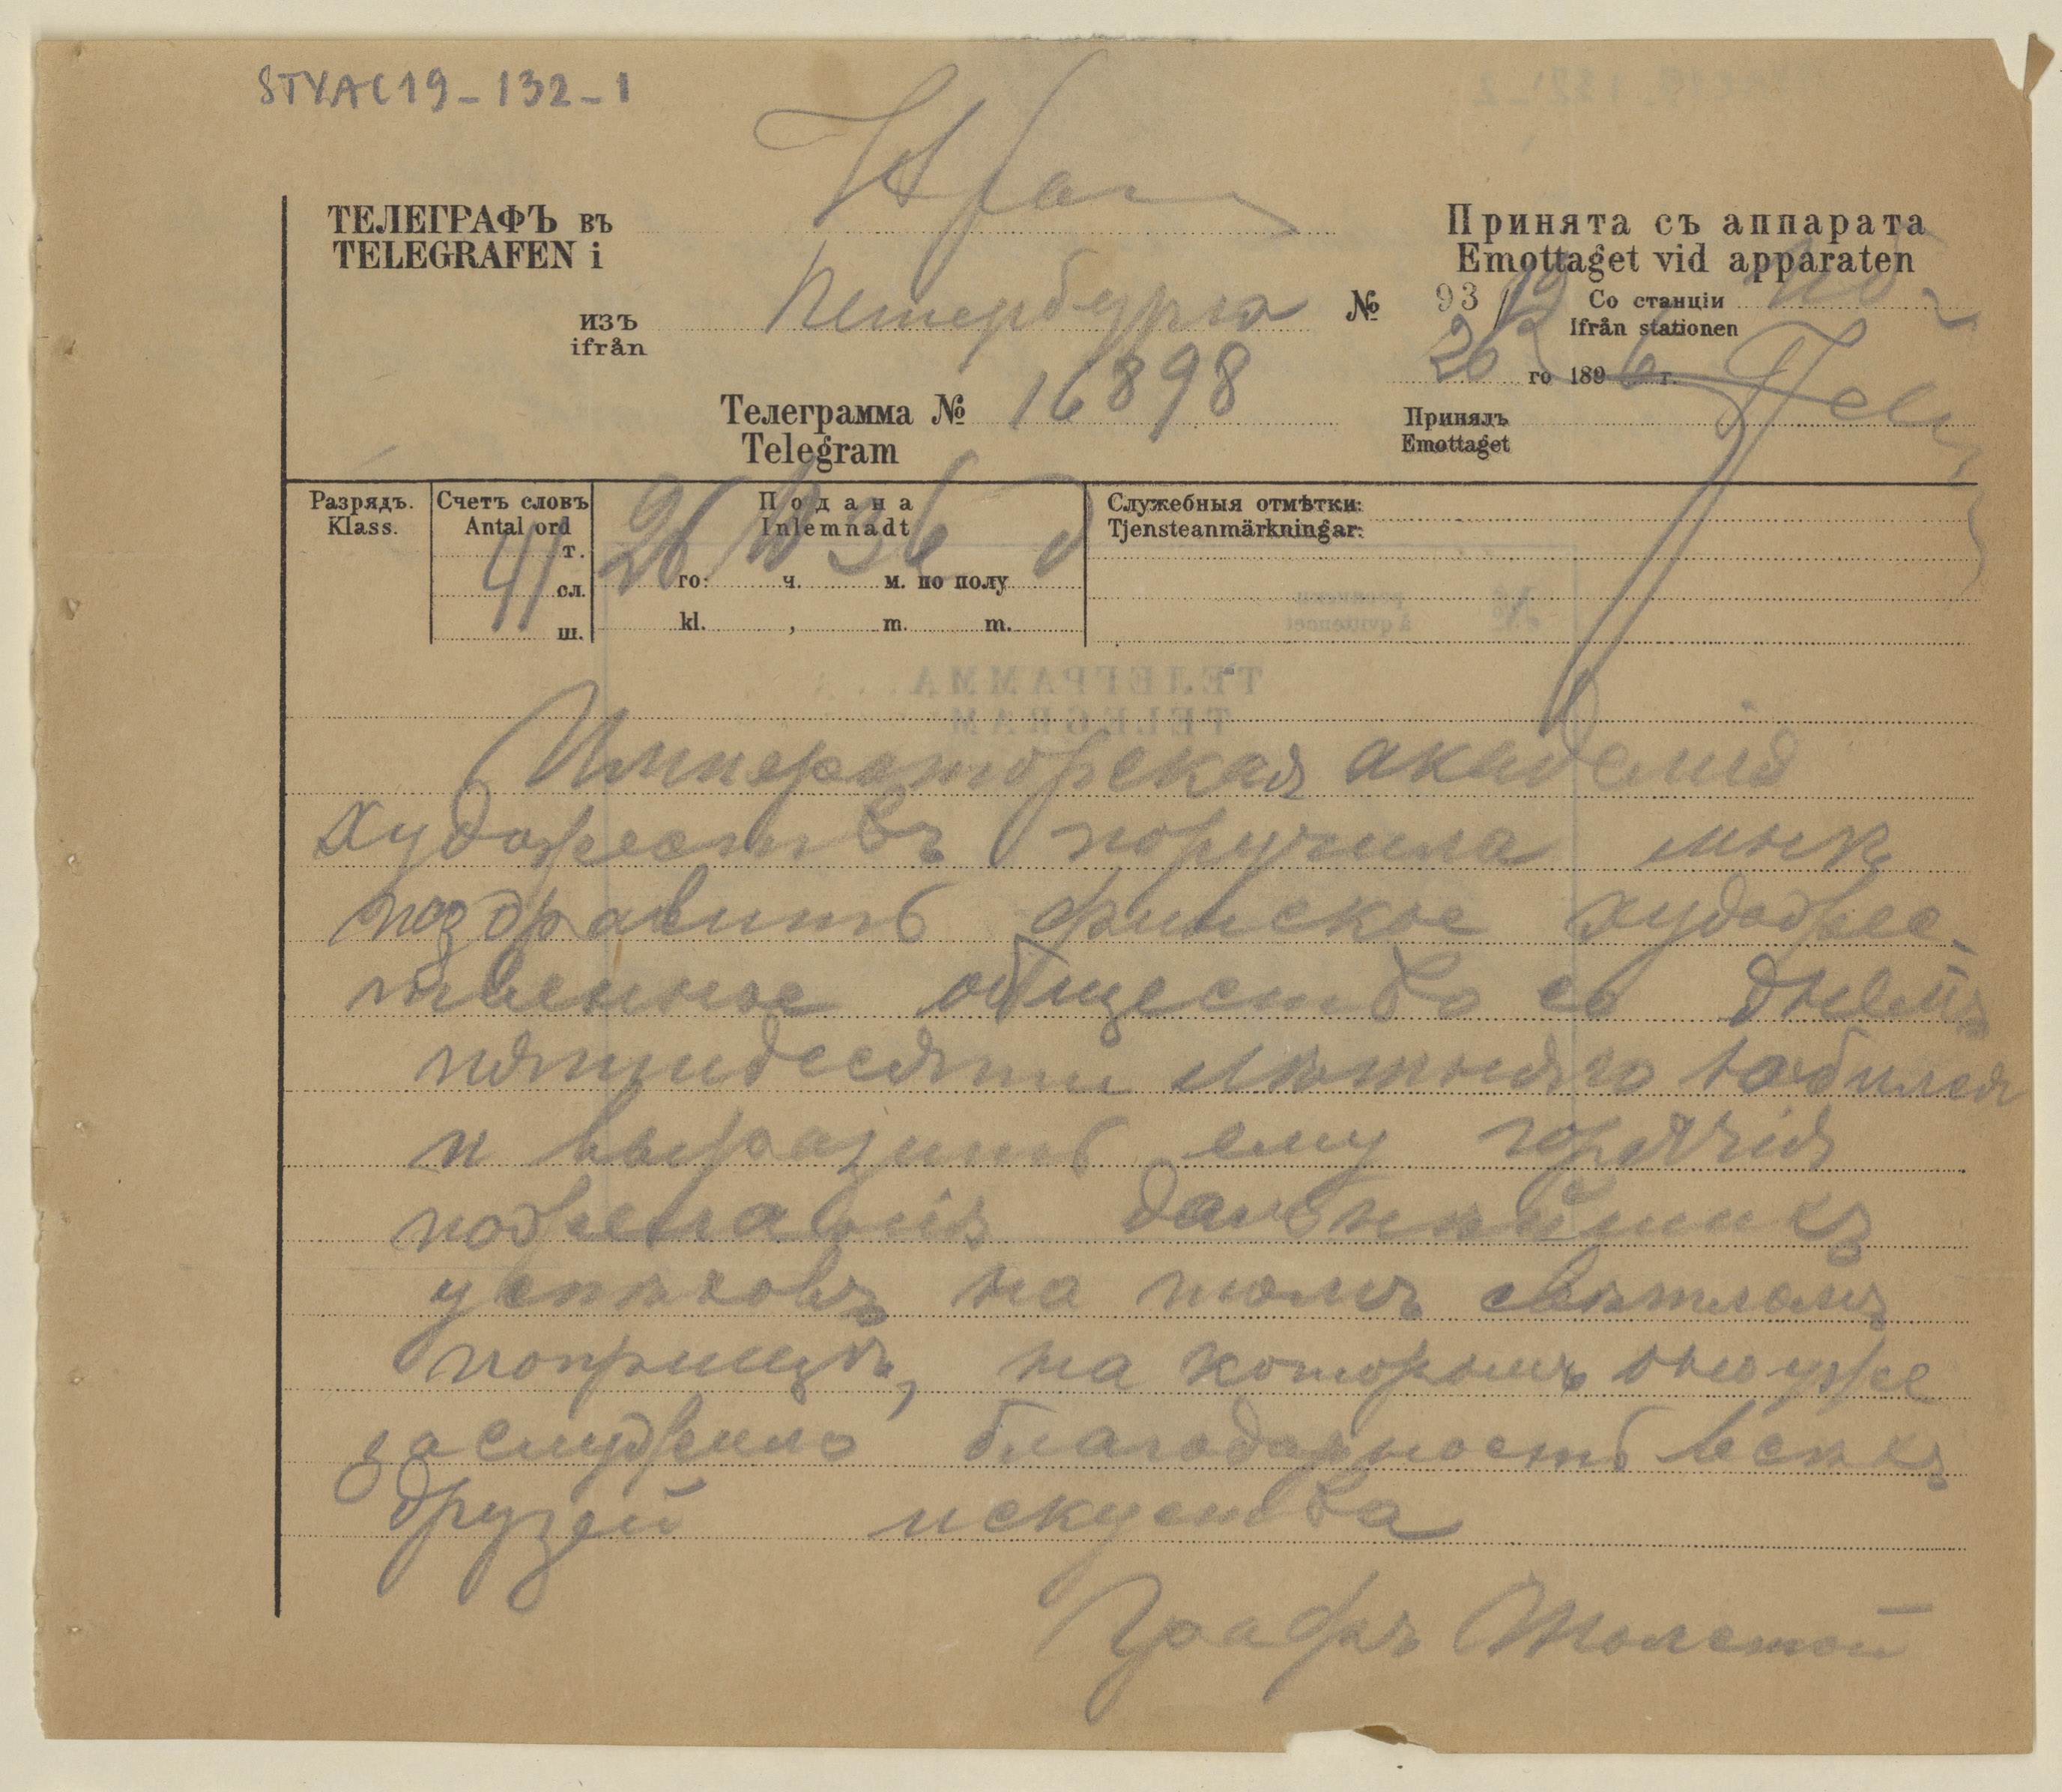 STYAC19-132-1
ТЕЛЕГРАФЪ въ
TELEGRAFEN i
Принята съ аппарата
Emottaget vid apparaten
изъ Петербурга
ifrån
№ 93/19
Со станціи
Ifrån stationen
26 го 1896 г.
Телеграмма № 16898
Telegram
Принялъ
Emottaget
Разрядъ.
Klass.
Счетъ словъ
Antal ord
41
т.
сл.
ш.
Подана
Inlemnadt
26 10 36 д
го: ч. м. по полу
kl. , m. m.
Служебныя отмѣтки:
Tjensteanmärkningar:
Императорская академія
художествъ поручила мнѣ
поздравить финское художес-
твенное общество со днемъ
пятидесяти лѣтняго юбилея
и выразить ему горячія
пожеланія дальнѣйшихъ
успѣховъ на томъ свѣтломъ
поприщѣ, на которомъ оно уже
заслужило благодарность всѣхъ
друзей искуства
Графъ Толстой